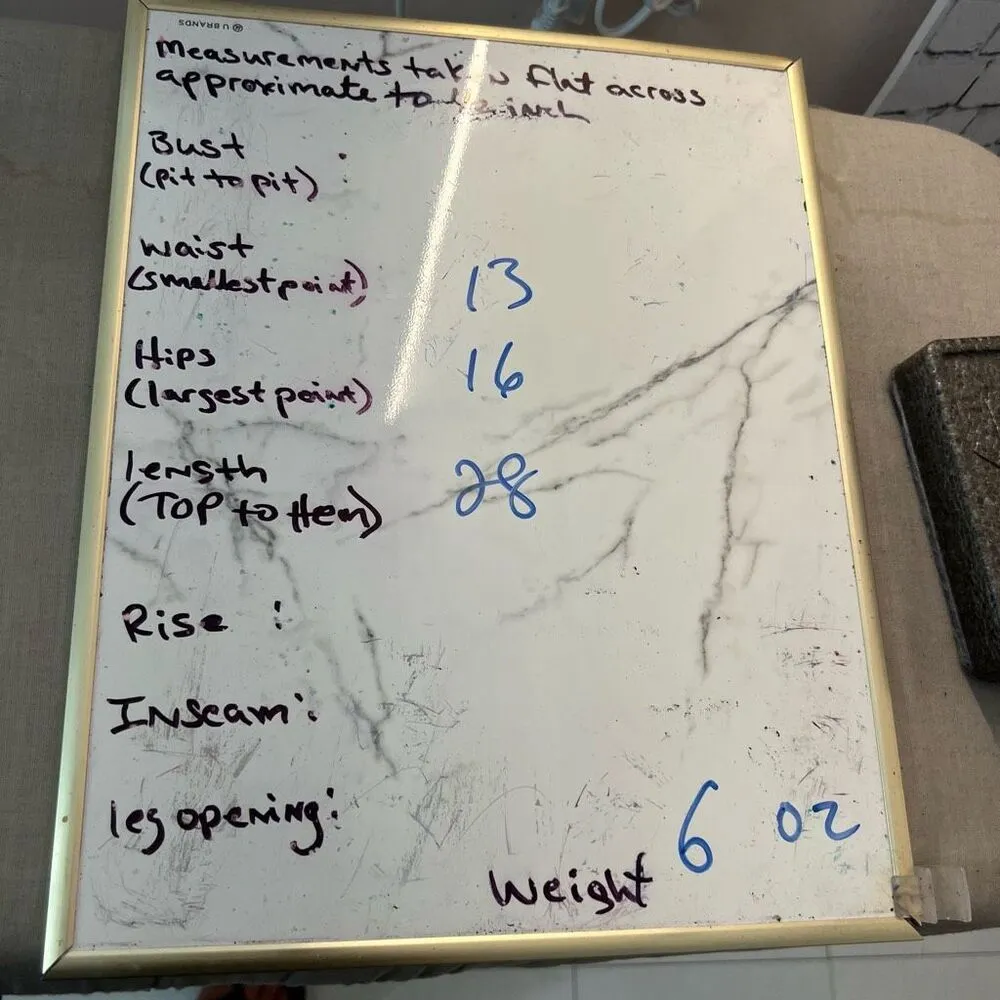 U BRANDS
Measurements taken flat across
approximate to inch
Bust :
(pit to pit)
waist
(smallest point) 13
Hips 16
(largest point)
length 28
(TOP to Hem)
Rise :
INseam :
leg opening: 6 oz
Weight